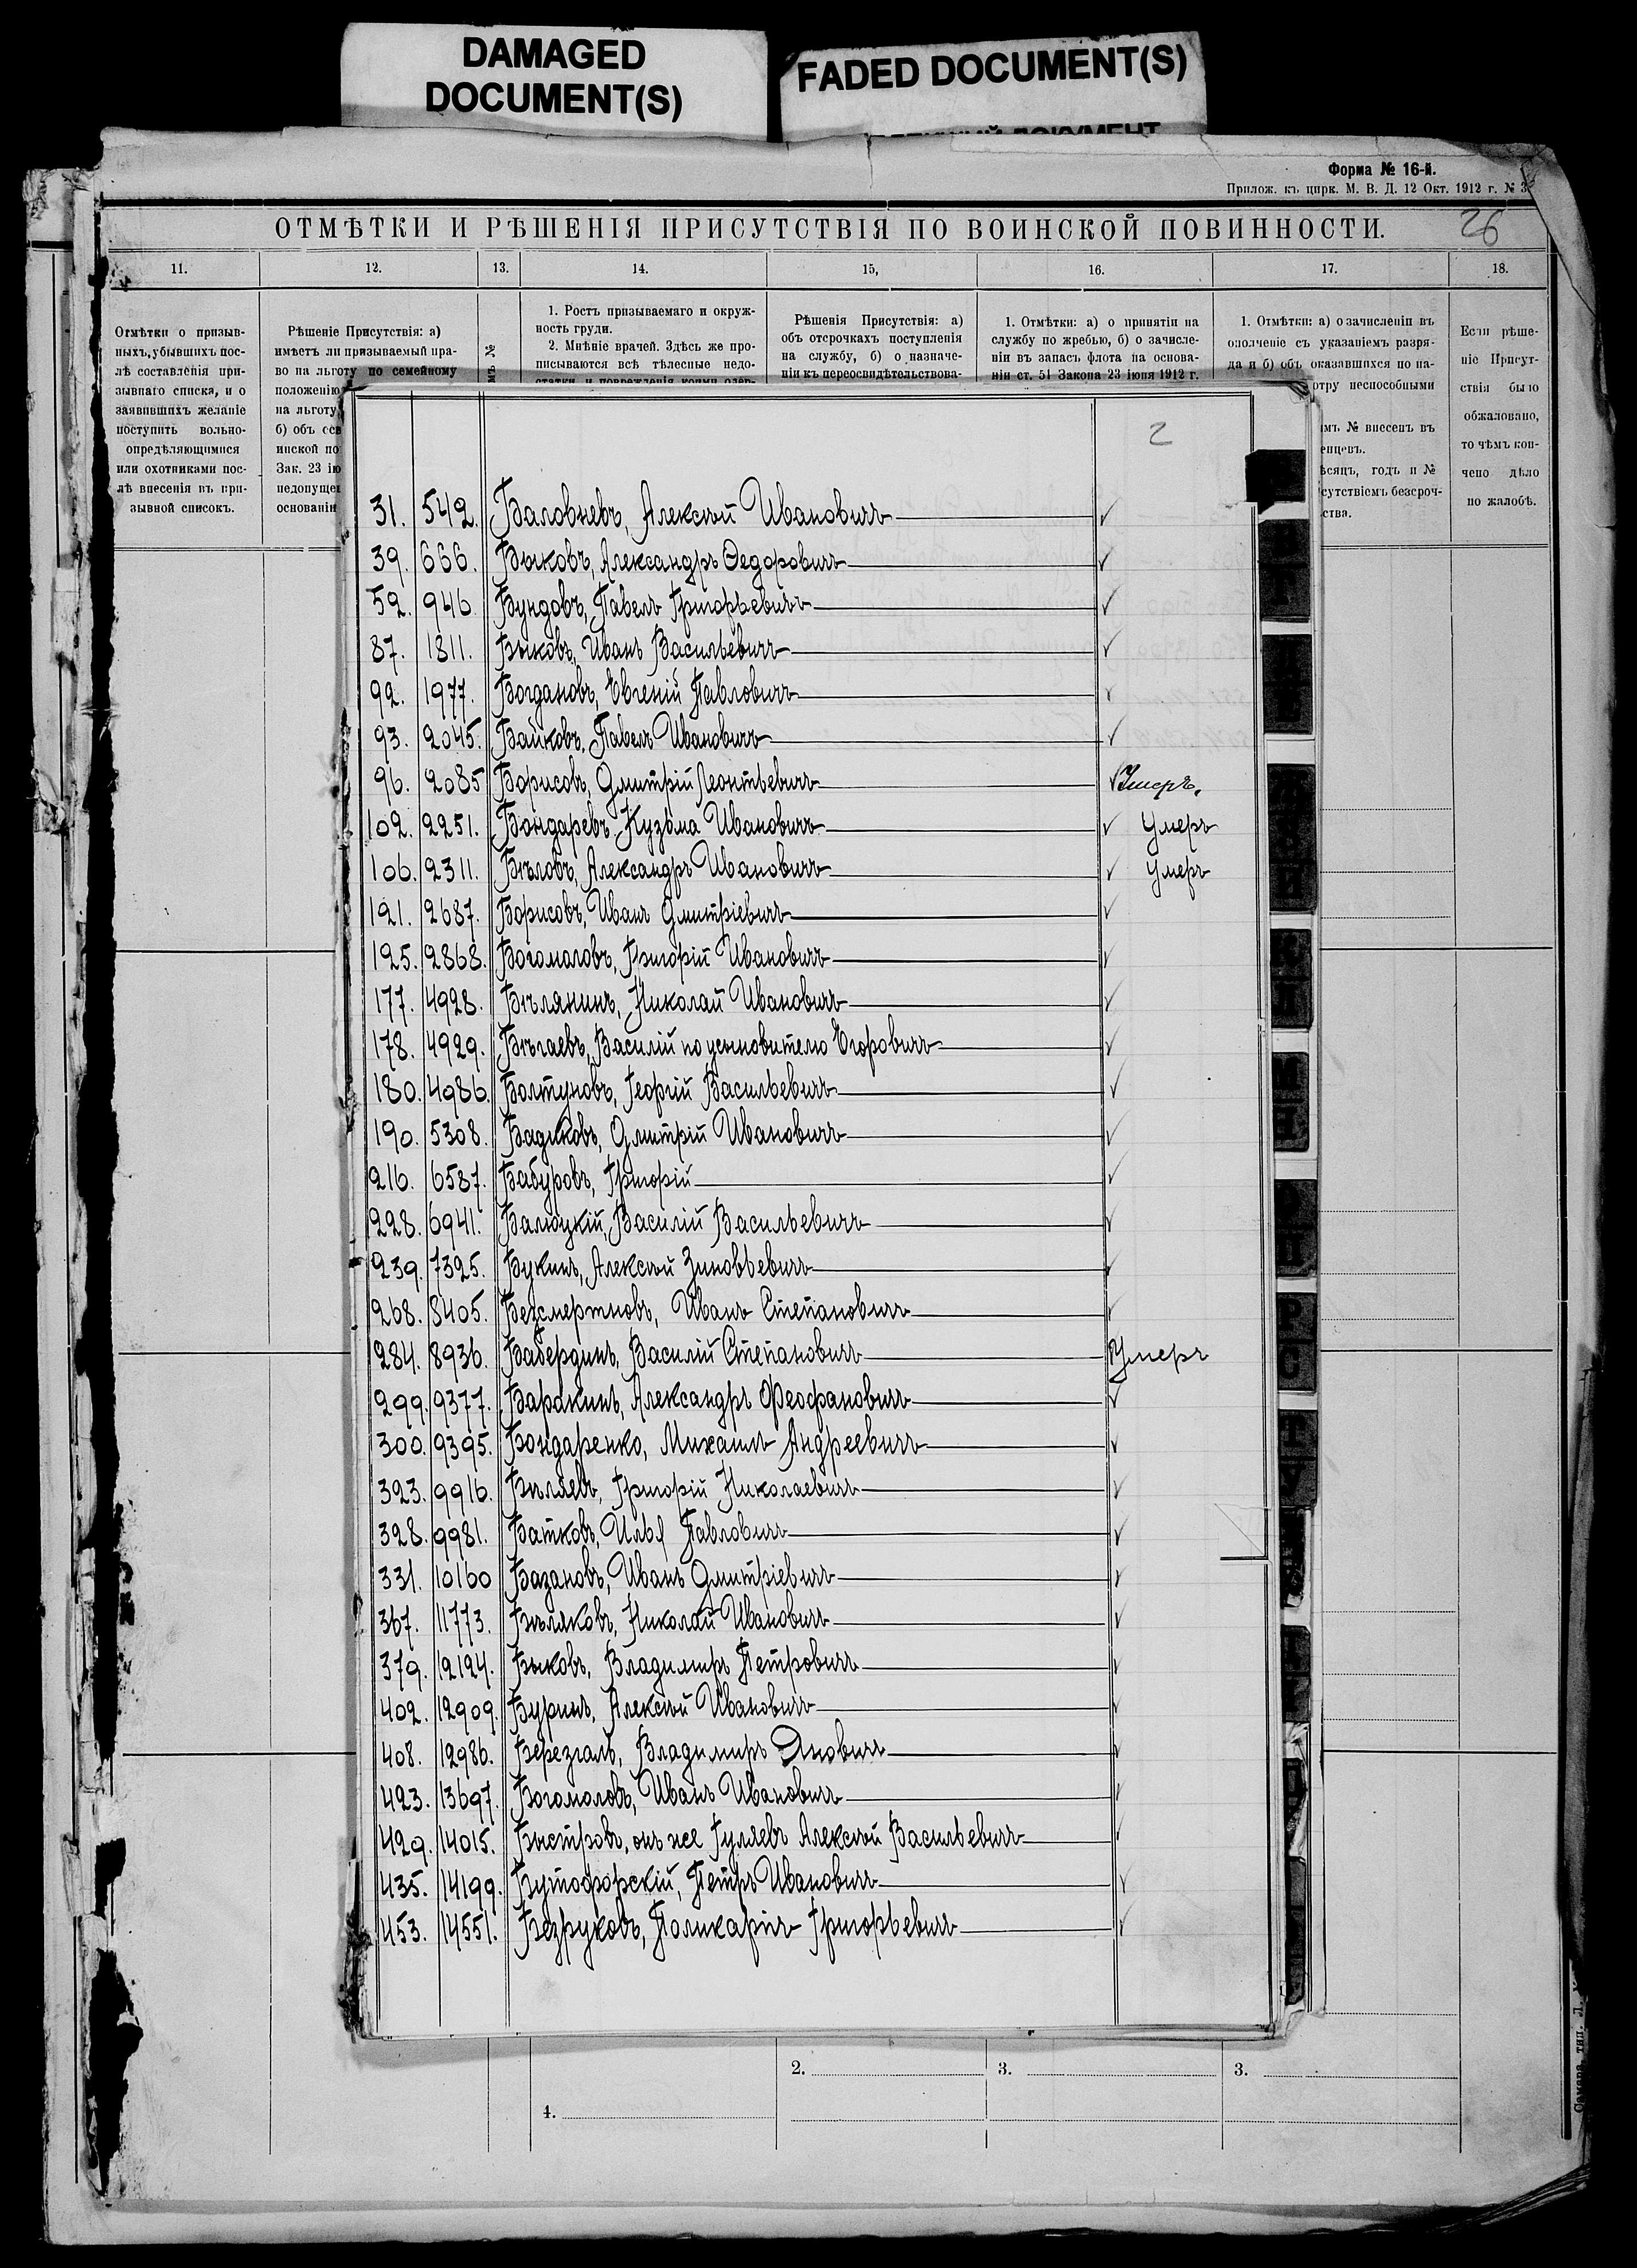 DAMAGED
DOCUMENT(S)
FADED DOCUMENT(S)
ДОКУМЕНТ
Форма № 16-й.
Прилож. къ цирк. М. В. Д. 12 Окт. 1912 г. № 3
ОТМѢТКИ И РѢШЕНІЯ ПРИСУТСТВІЯ ПО ВОИНСКОЙ ПОВИННОСТИ.
26
11.
12.
13.
14.
15,
16.
17.
18.
Отмѣтки о призыв-
ныхъ, убывшихъ пос-
лѣ составленія при-
зывнаго списка, и о
заявившихъ желаніе
поступить вольно-
опредѣляющимися
или охотниками пос-
лѣ внесенія въ при-
зывной списокъ.
Рѣшеніе Присутствія: а)
имѣетъ ли призываемый пра-
во на льготу по семейному
положенію
на льготу
б) объ осв
инской по
Зак. 23 ію
недопуще
основаніи
мъ №
1. Ростъ призываемаго и окруж-
ность груди.
2. Мнѣніе врачей. Здѣсь же про-
писываются всѣ тѣлесные недо-
статки и поврежденія коими одер-
Рѣшенія Присутствія: а)
объ отсрочкахъ поступленія
на службу, б) о назначе-
ніи къ переосвидѣтельствова-
1. Отмѣтки: а) о принятіи на
службу по жребію, б) о зачисле-
ніи въ запасъ флота на основа-
ніи ст. 51 Закона 23 іюня 1912 г.
1. Отмѣтки: а) о зачисленіи въ
ополченіе съ указаніемъ разря-
да и б) объ оказавшихся по на-
отру неспособными
мъ № внесенъ въ
енцевъ.
ѣсяцъ, годъ и №
сутствіемъ безсроч-
ства.
Если рѣше-
ніе Присут-
ствія было
обжаловано,
то чѣмъ кон-
чено дѣло
по жалобѣ.
2
31. 542. Баловневъ, Алексѣй Ивановичъ ✓
39. 666. Быковъ, Александръ Ѳедоровичъ ✓
52. 946. Бундовъ, Павелъ Григорьевичъ ✓
87. 1811. Быковъ, Иванъ Васильевичъ ✓
92. 1977. Богдановъ, Евгеній Павловичъ ✓
93. 2045. Байковъ, Павелъ Ивановичъ ✓
96. 2085 Борисовъ, Дмитрій Леонтьевичъ ✓ Умеръ.
102. 2251. Бондаревъ, Кузьма Ивановичъ ✓ Умеръ
106. 2311. Бѣловъ, Александръ Ивановичъ ✓ Умеръ
121. 2687. Борисовъ, Иванъ Дмитріевичъ ✓
125. 2868. Богомоловъ, Григорій Ивановичъ ✓
177. 4928. Бѣлянинъ, Николай Ивановичъ ✓
178. 4929. Бѣгаевъ, Василій по усыновителю Егоровичъ ✓
180. 4986. Болтуновъ, Георгій Васильевичъ ✓
190. 5308. Бадиковъ, Дмитрій Ивановичъ ✓
216. 6587. Бабуровъ, Григорій ✓
228. 6941. Балюцкій, Василій Васильевичъ ✓
239. 7325. Букинъ, Алексѣй Зиновьевичъ ✓
268. 8405. Безсмертновъ, Иванъ Степановичъ ✓
284. 8936. Бабердинъ, Василій Степановичъ Умеръ
299. 9377. Баракинъ, Александръ Феофановичъ ✓
300. 9395. Бондаренко, Михаилъ Андреевичъ ✓
323. 9916. Бѣляевъ, Григорій Николаевичъ ✓
328. 9981. Батковъ, Илья Павловичъ ✓
331. 10160 Базановъ, Иванъ Дмитріевичъ ✓
367. 11773. Бѣляковъ, Николай Ивановичъ ✓
379. 12124. Быковъ, Владимиръ Петровичъ ✓
402. 12909. Буринъ, Алексѣй Ивановичъ ✓
408. 12986. Березгалъ, Владимиръ Яновичъ ✓
423. 13697. Богомоловъ, Иванъ Ивановичъ ✓
429. 14015. Быстровъ, онъ же Гуляевъ Алексѣй Васильевичъ ✓
435. 14199. Бутофорскій, Петръ Ивановичъ ✓
453. 14551. Безруковъ, Поликарпъ Григорьевичъ ✓
2.
3.
3.
4.
Самара, тип. Л.